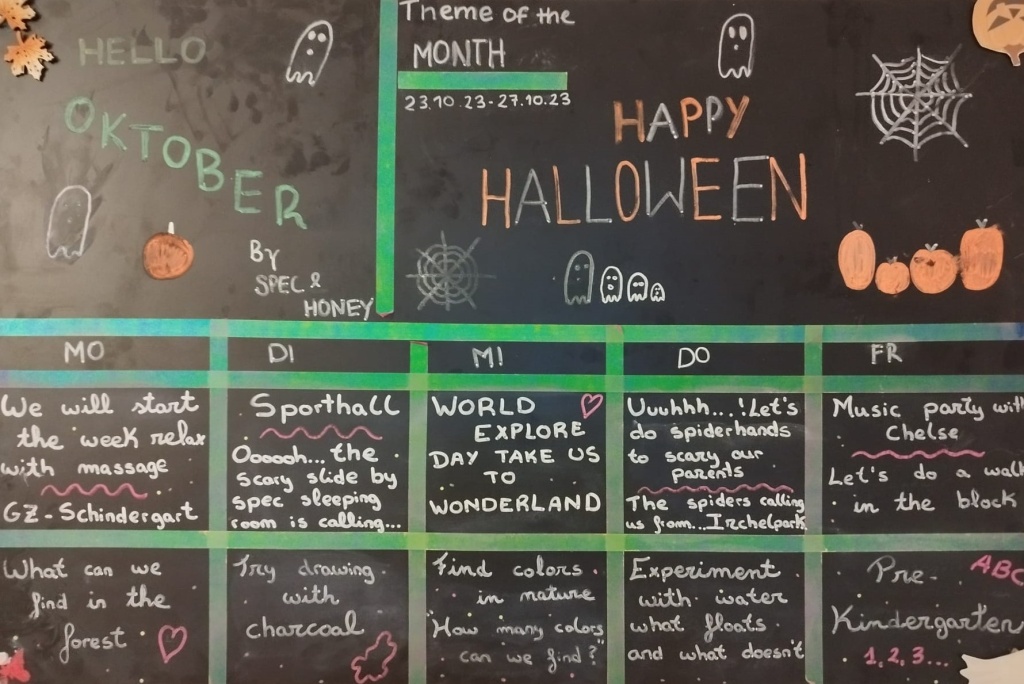 HELLO
OKTOBER
By
SPEC &
HONEY
Theme of the
MONTH
23.10.23-27.10.23
HAPPY
HALLOWEEN
MO
DI
MI
DO
FR
We will start
the week relax
with massage
GZ-Schindergart
Sporthall
Oooooh... the
scary slide by
spec sleeping
room is calling...
WORLD
EXPLORE
DAY TAKE US
TO
WONDERLAND
Uuuhhh...!Let's
do spiderhands
to scary our
parents
The spiders calling
us from...Irchelpark
Music party with
Chelse
Let's do a walk
in the block
What can we
find in the
forest
Try drawing
with
charcoal
Find colors
in nature
"How many colors
can we find?"
Experiment
with water
what floats
and what doesn't
Pre-
ABC
Kindergarten
1,2,3...